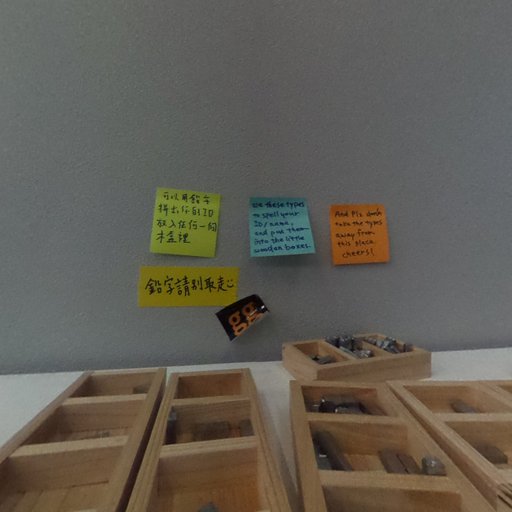 可以用鉛字
拼出你的ID
放入任何一個
木盒裡
use these types
to spell your
ID/name,
and put them
into the little
wooden boxes.
And Plz don't
take the types
away from
this place.
cheers!
鉛字請別取走
gg